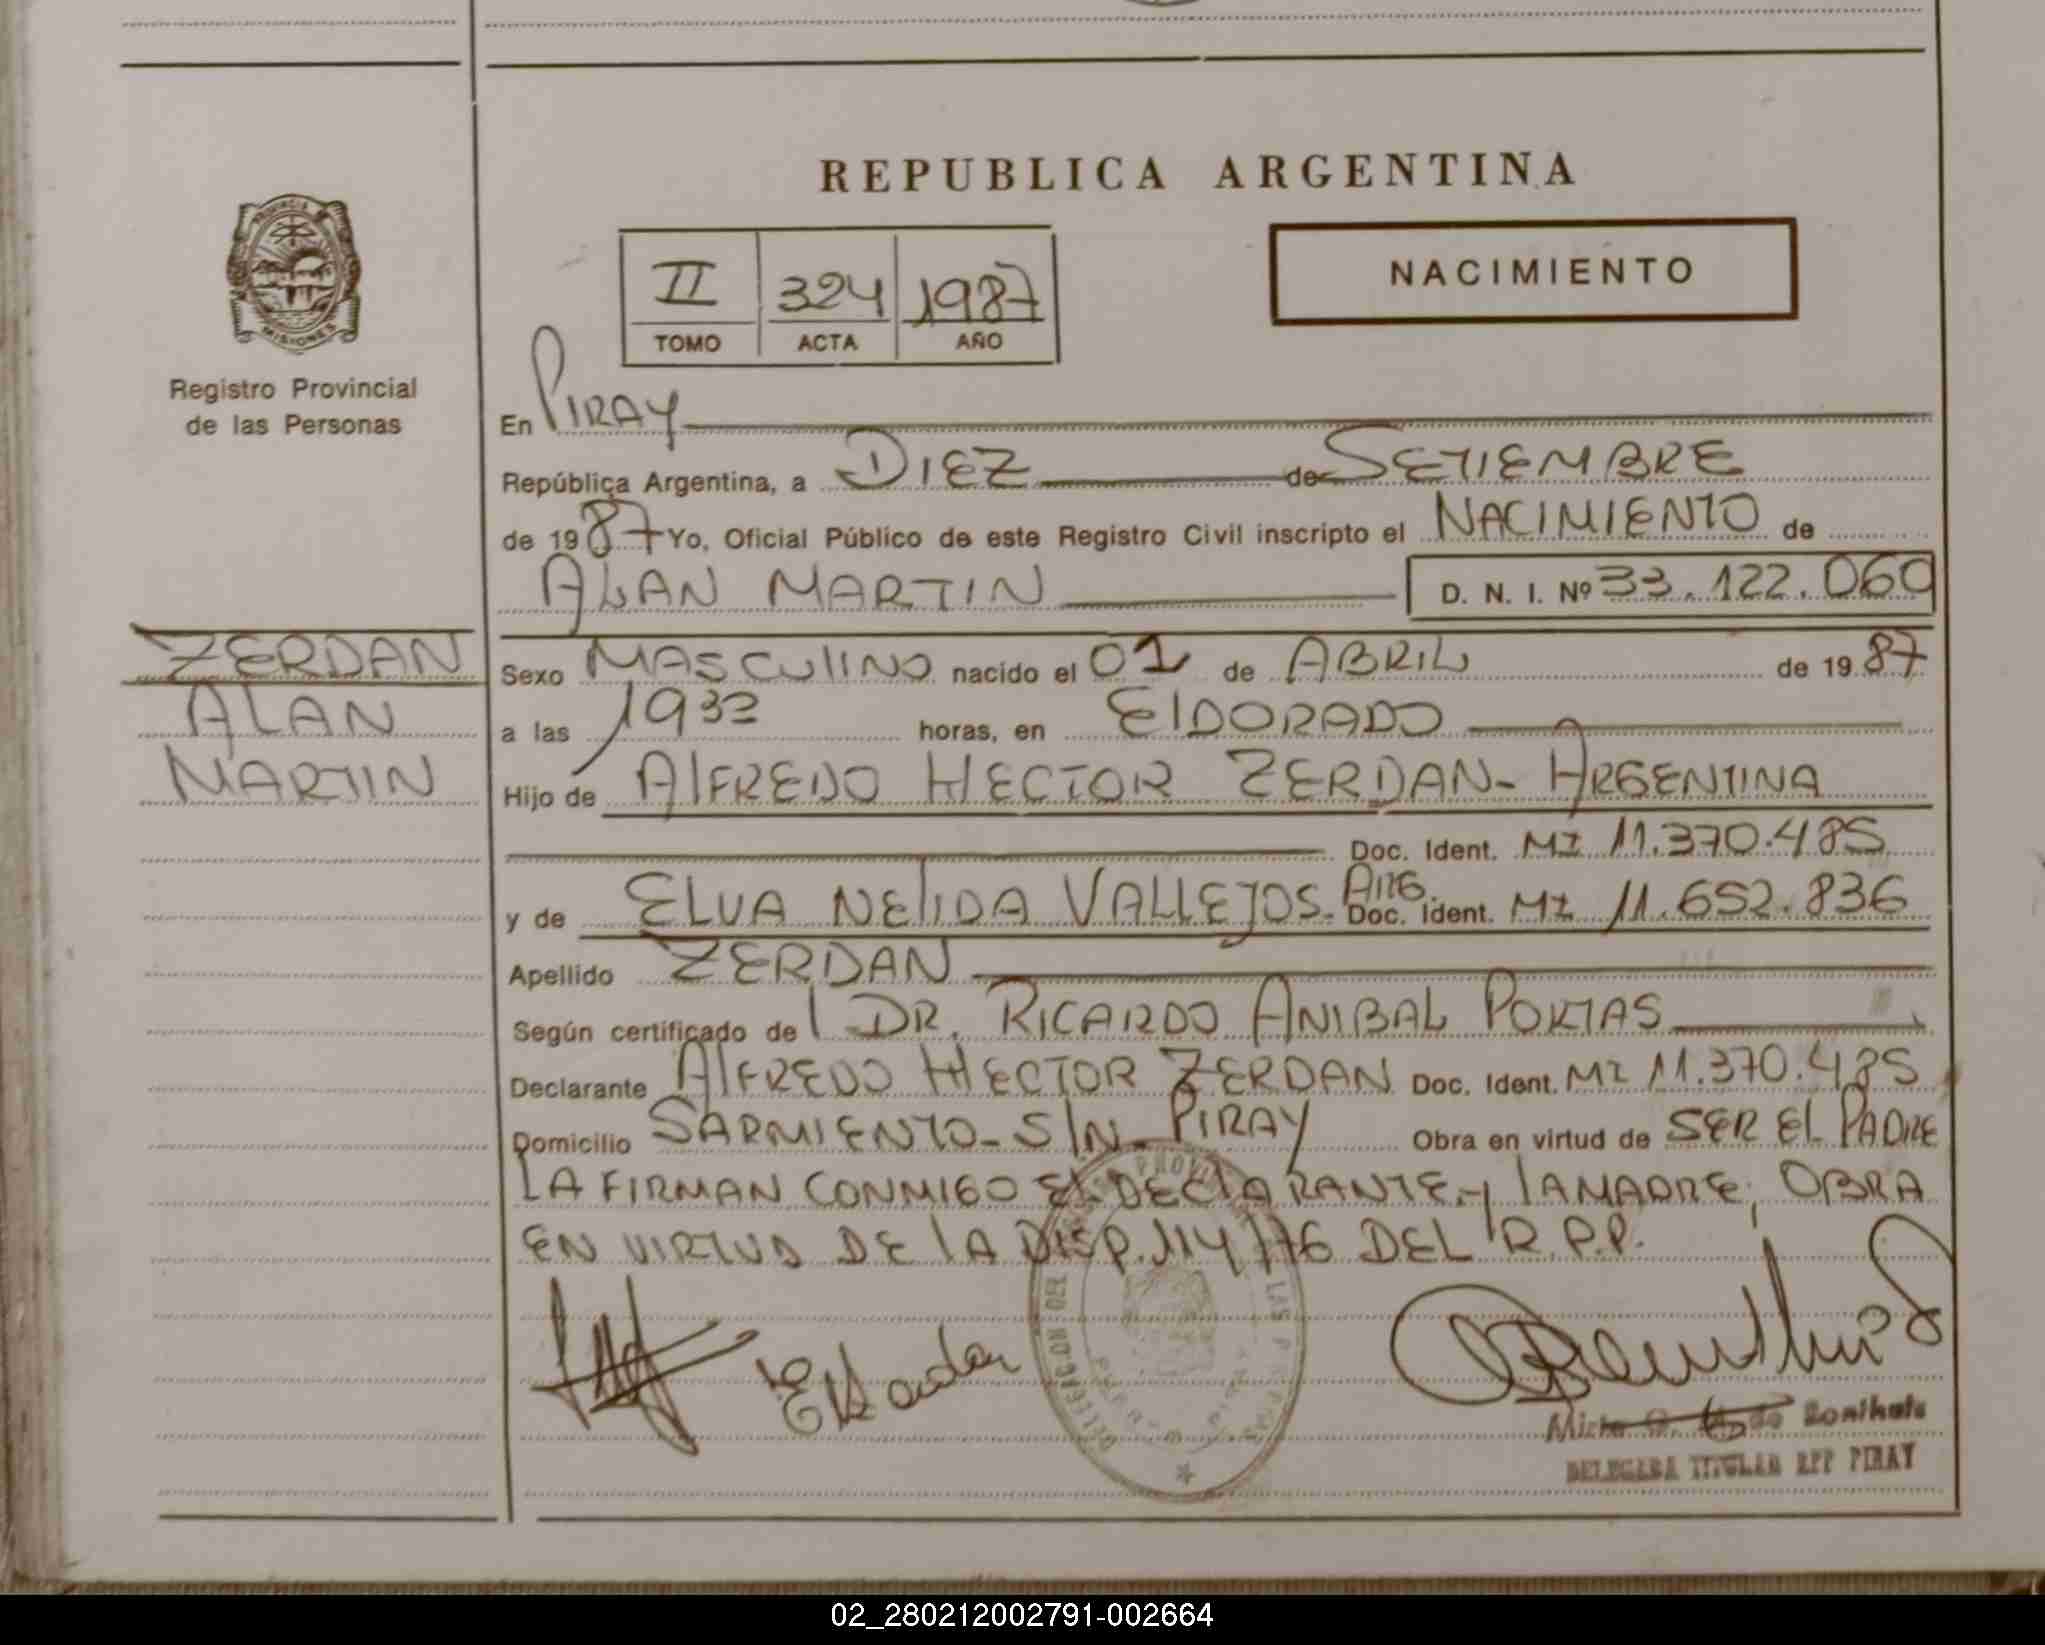 REPUBLICA ARGENTINA
PROVINCIA
MISIONES
Registro Provincial
de las Personas
II 324 1987
TOMO ACTA AÑO
NACIMIENTO
En PIRAY
República Argentina, a DIEZ de SETIEMBRE
de 1987 Yo, Oficial Público de este Registro Civil inscripto el NACIMIENTO de
ALAN MARTIN D. N. I. Nº 33.122.060
ZERDAN
ALAN
MARTIN
Sexo MASCULINO nacido el 01 de ABRIL de 1987
a las 1933 horas, en ElDORADO
Hijo de AlFREDO HECTOR ZERDAN- ARGENTINA
Doc. Ident. MI 11.370.485
y de ELVA NElIDA VALLEJOS- ARG. Doc. Ident. MI 11.652.836
Apellido ZERDAN
Según certificado de l DR. RICARDO ANIBAL PORTAS
Declarante AlFREDO HECTOR ZERDAN Doc. Ident. MI 11.370.485
Domicilio SARMIENTO- S/N- PIRAY Obra en virtud de SER El PADRE
LA FIRMAN CONMIGO El DEClARANTE y lA MADRE, OBRA
EN VIRTUD DE lA DISP. 114/76 DEL R.P.P.
DELEGADA TITULAR RPP PIRAY
02_280212002791-002664